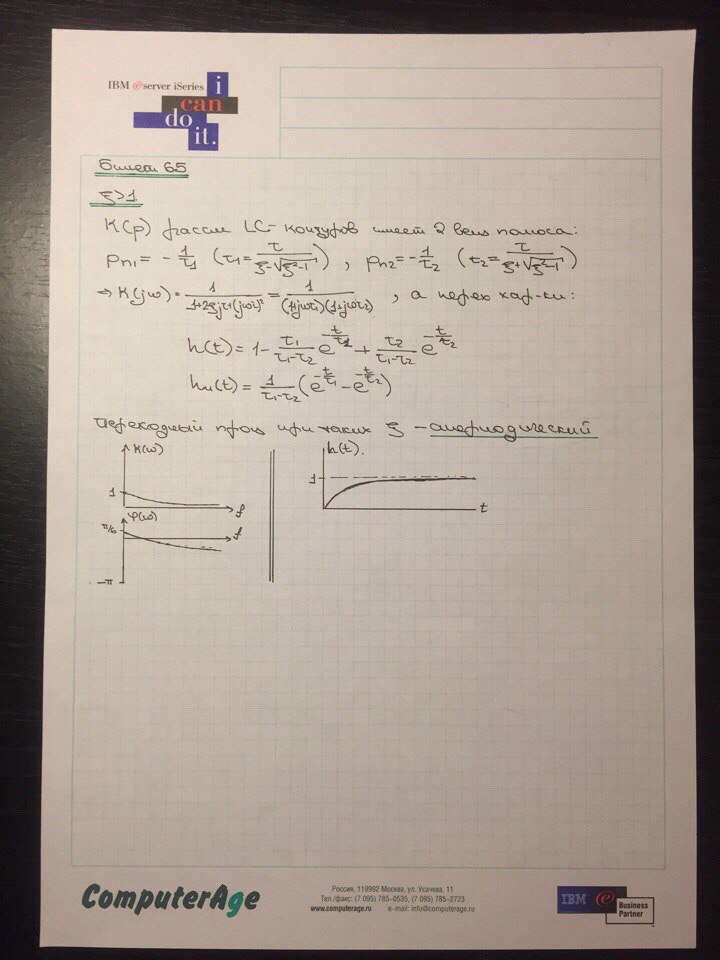 IBM @server iSeries
i
can
do
it.
Билет 65
ξ>1
K(p) рассм LC-контуров имеет 2 вещ полюса:
pп1 = -1/τ1 (τ1 = τ/(ξ-√(ξ²-1))), pп2 = -1/τ2 (τ2 = τ/(ξ+√(ξ²-1)))
⇒ K(jω) = 1/(1+2ξjτ+(jωτ)²) = 1/((1+jωτ1)(1+jωτ2)), а перех хар-ки:
h(t) = 1 - τ1/(τ1-τ2) e^(-t/τ1) + τ2/(τ1-τ2) e^(-t/τ2)
hи(t) = 1/(τ1-τ2) (e^(-t/τ1) - e^(-t/τ2))
Переходный проц при таких ξ - апериодический
K(ω)
1
f
φ(ω)
f
-π
h(t).
1
t
ComputerAge
Россия, 119992 Москва, ул. Усачева, 11
Тел./факс: (7 095) 785-0535, (7 095) 785-2723
www.computerage.ru e-mail: info@computerage.ru
IBM
Business
Partner